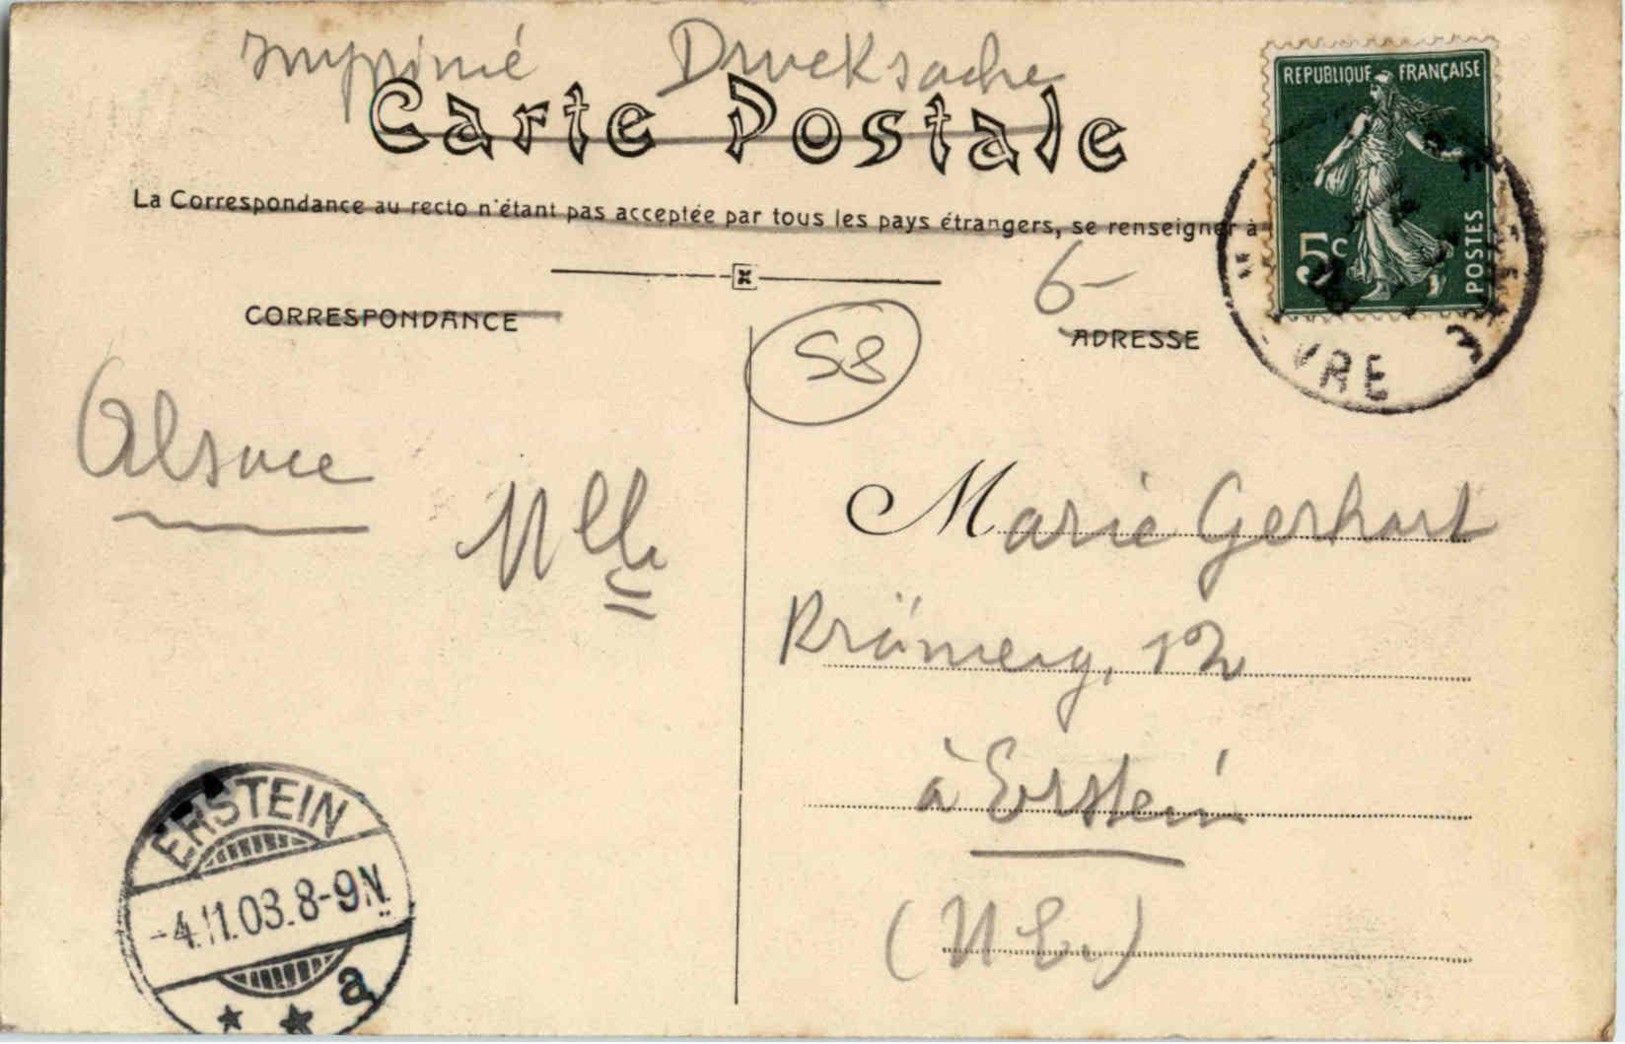 imprimé Drucksache
Carte Postale
La Correspondance au recto n'étant pas acceptée par tous les pays étrangers, se renseigner à
REPUBLIQUE FRANÇAISE
5c POSTES
VRE
6-
CORRESPONDANCE
ADRESSE
58
Alsace
Mlle
Marie Gerhart
12
à Erstein
ERSTEIN
-4.11.03.8-9N.
a